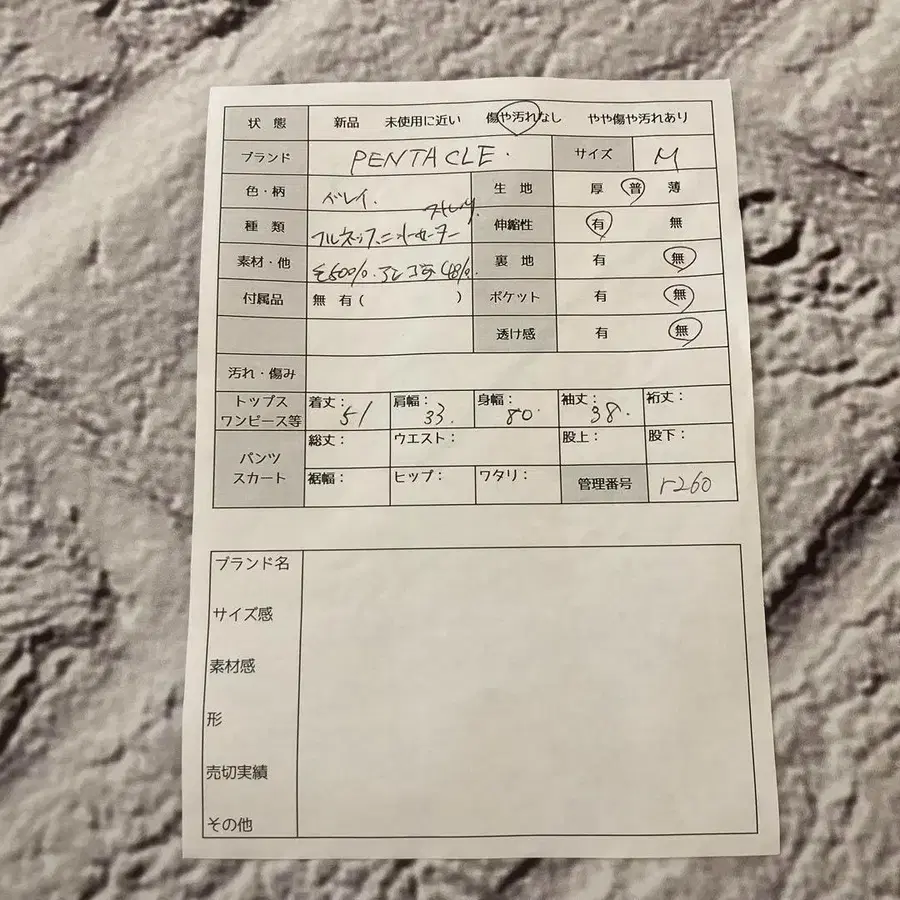 状 態 新品 未使用に近い 傷や汚れなし やや傷や汚れあり
ブランド PENTACLE. サイズ M
色・柄 生 地 厚 普 薄
種 類 伸縮性 有 無
素材・他 裏 地 有 無
付属品 無 有 ( ) ポケット 有 無
透け感 有 無
汚れ・傷み
トップス
ワンピース等 着丈: 51 肩幅: 33. 身幅: 80. 袖丈: 38. 裄丈:
パンツ
スカート 総丈: ウエスト: 股上: 股下:
裾幅: ヒップ: ワタリ: 管理番号 r260
ブランド名
サイズ感
素材感
形
売切実績
その他